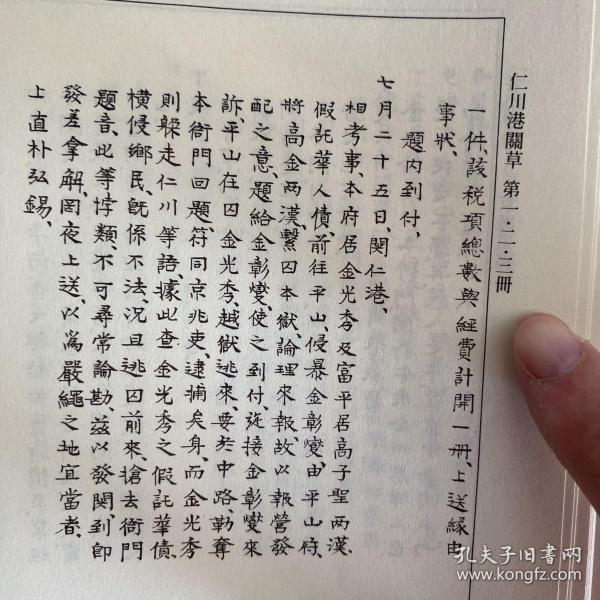 仁川港關草 第一·二·三冊
一件、該税項總數與經費計開一册、上送緣由
事狀、
題内到付、
七月二十五日、関仁港、
相考事、本府居金光秀及富平居高子聖两漢、
假託華人債、前往平山、侵暴金彰燮、由平山府、
將高金两漢、繫囚本獄、論理來報、故以報營發
配之意、題給金彰燮、使之到付、旋接金彰燮來
訴、平山在囚金光秀、越獄逃來、要於中路、勒奪
本衙門回題、符同京兆吏、逮捕矣身、而金光秀
則躱走仁川等語、據此查金光秀之假託華債、
横侵鄉民、旣係不法、况且逃囚前來、搶去衙門
題音、此等悖類、不可尋常論勘、玆以發関、到卽
發差拿解、罔夜上送、以爲嚴繩之地宜當者、
上直朴弘錫、
孔夫子旧书网
www.kongfz.com